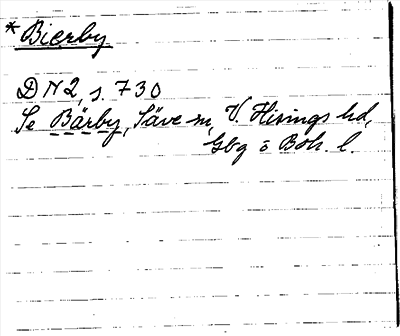 * Bierby
DN 2, s. 730
Se Bärby, Säve sn, V. Hisings hd,
Gbg o Boh. l.